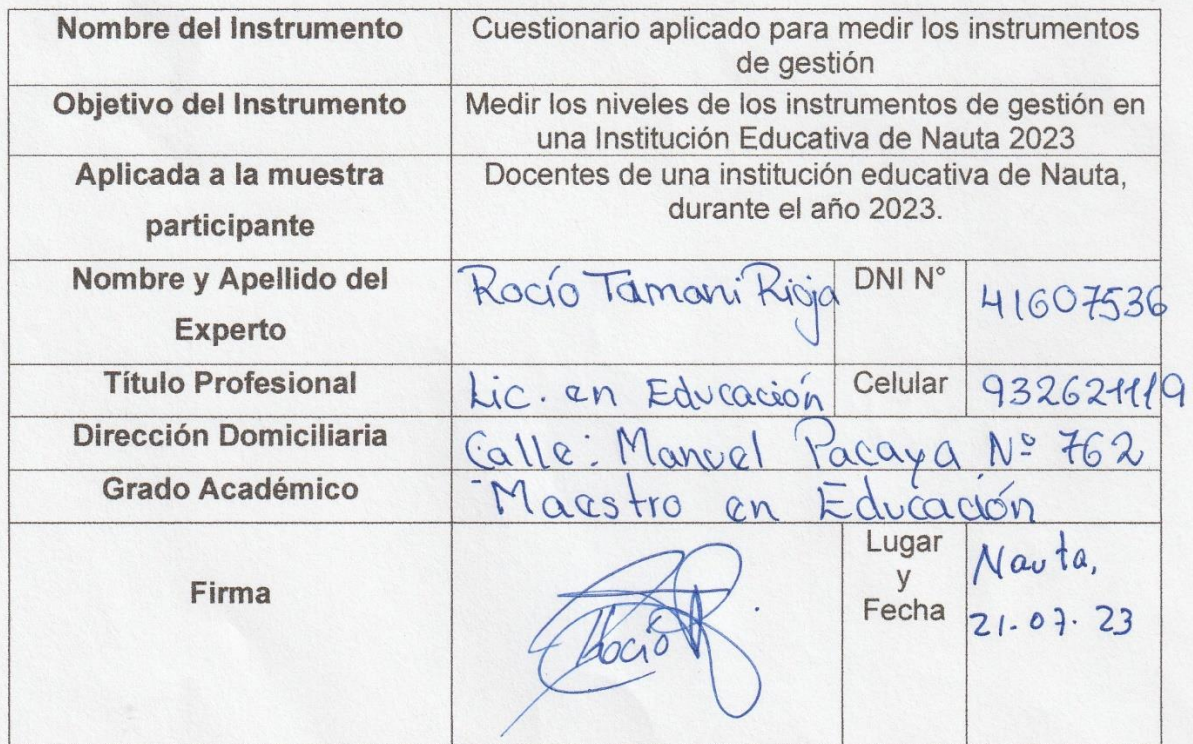 Nombre del Instrumento Cuestionario aplicado para medir los instrumentos
de gestión
Objetivo del Instrumento Medir los niveles de los instrumentos de gestión en
una Institución Educativa de Nauta 2023
Aplicada a la muestra Docentes de una institución educativa de Nauta,
participante durante el año 2023.
Nombre y Apellido del Rocío Tamani Rioja DNI N° 41607536
Experto
Título Profesional Lic. en Educación Celular 932621119
Dirección Domiciliaria Calle: Manuel Pacaya Nº 762
Grado Académico Maestro en Educación
Firma Rocío Lugar
y
Fecha Nauta,
21.07.23